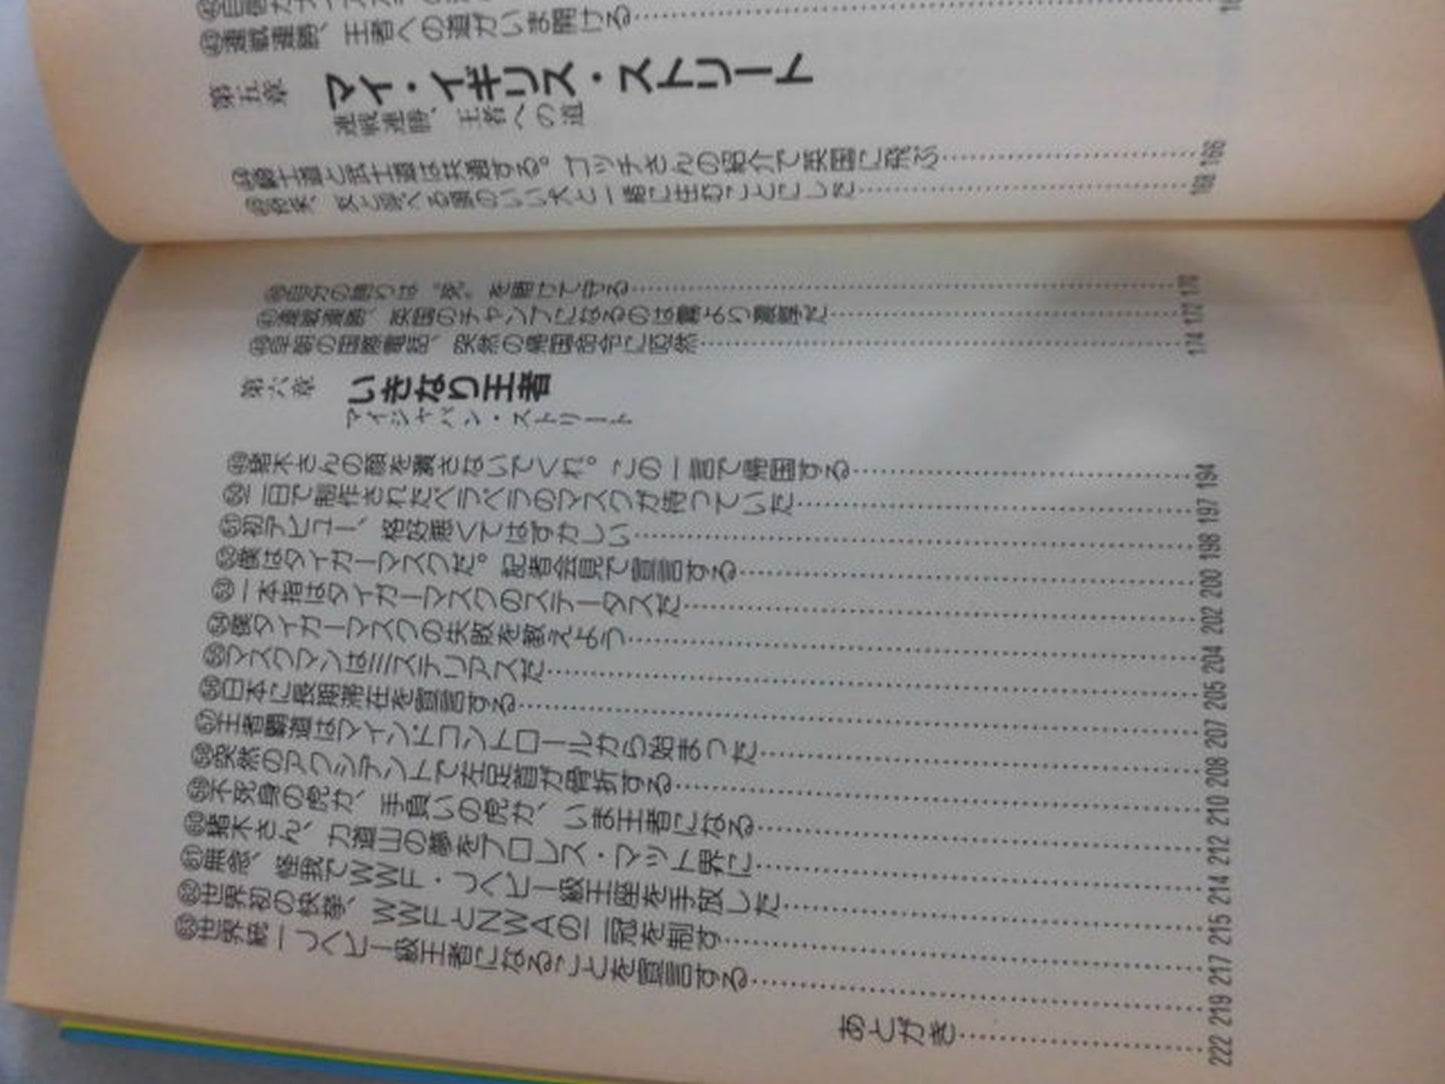 ㊸連戦連勝、王者への道がいま開ける
第五章 マイ・イギリス・ストリート
連戦連勝、王者への道
㊹騎士道と武士道は共通する。ゴッチさんの紹介で英国に飛ぶ 166
㊺将来、友と呼べる頭のいい犬と一緒に住むことにした 168
㊻自分の誇りは“死”を賭けて守る 170
㊼連戦連勝、英国のチャンプになるのは翼より簡単だ 172
㊽早朝の国際電話、突然の帰国命令に呆然 174
第六章 いきなり王者
マイジャパン・ストリート
㊾猪木さんの顔を潰さないでくれ。この一言で帰国する 194
㊿一日で制作されたペラペラのマスクが待っていた 197
51初デビュー、格好悪くてはずかしい 198
52僕はタイガーマスクだ。記者会見で宣言する 200
53一本指はタイガーマスクのステータスだ 202
54僕タイガーマスクの失敗を教えよう 204
55マスクマンはミステリアスだ 205
56日本に長期滞在を宣言する 207
57王者覇道はマインドコントロールから始まった 208
58突然のアクシデントで左足首が骨折する 210
59不死身の虎が、手負いの虎が、いま王者になる 212
60猪木さん、力道山の夢をプロレス・マット界に 214
61無念、怪我でWWF・Jヘビー級王座を手放した 215
62世界初の快挙、WWFとNWAの二冠を制す 217
63世界統一Jヘビー級王者になることを宣言する 219
あとがき 222